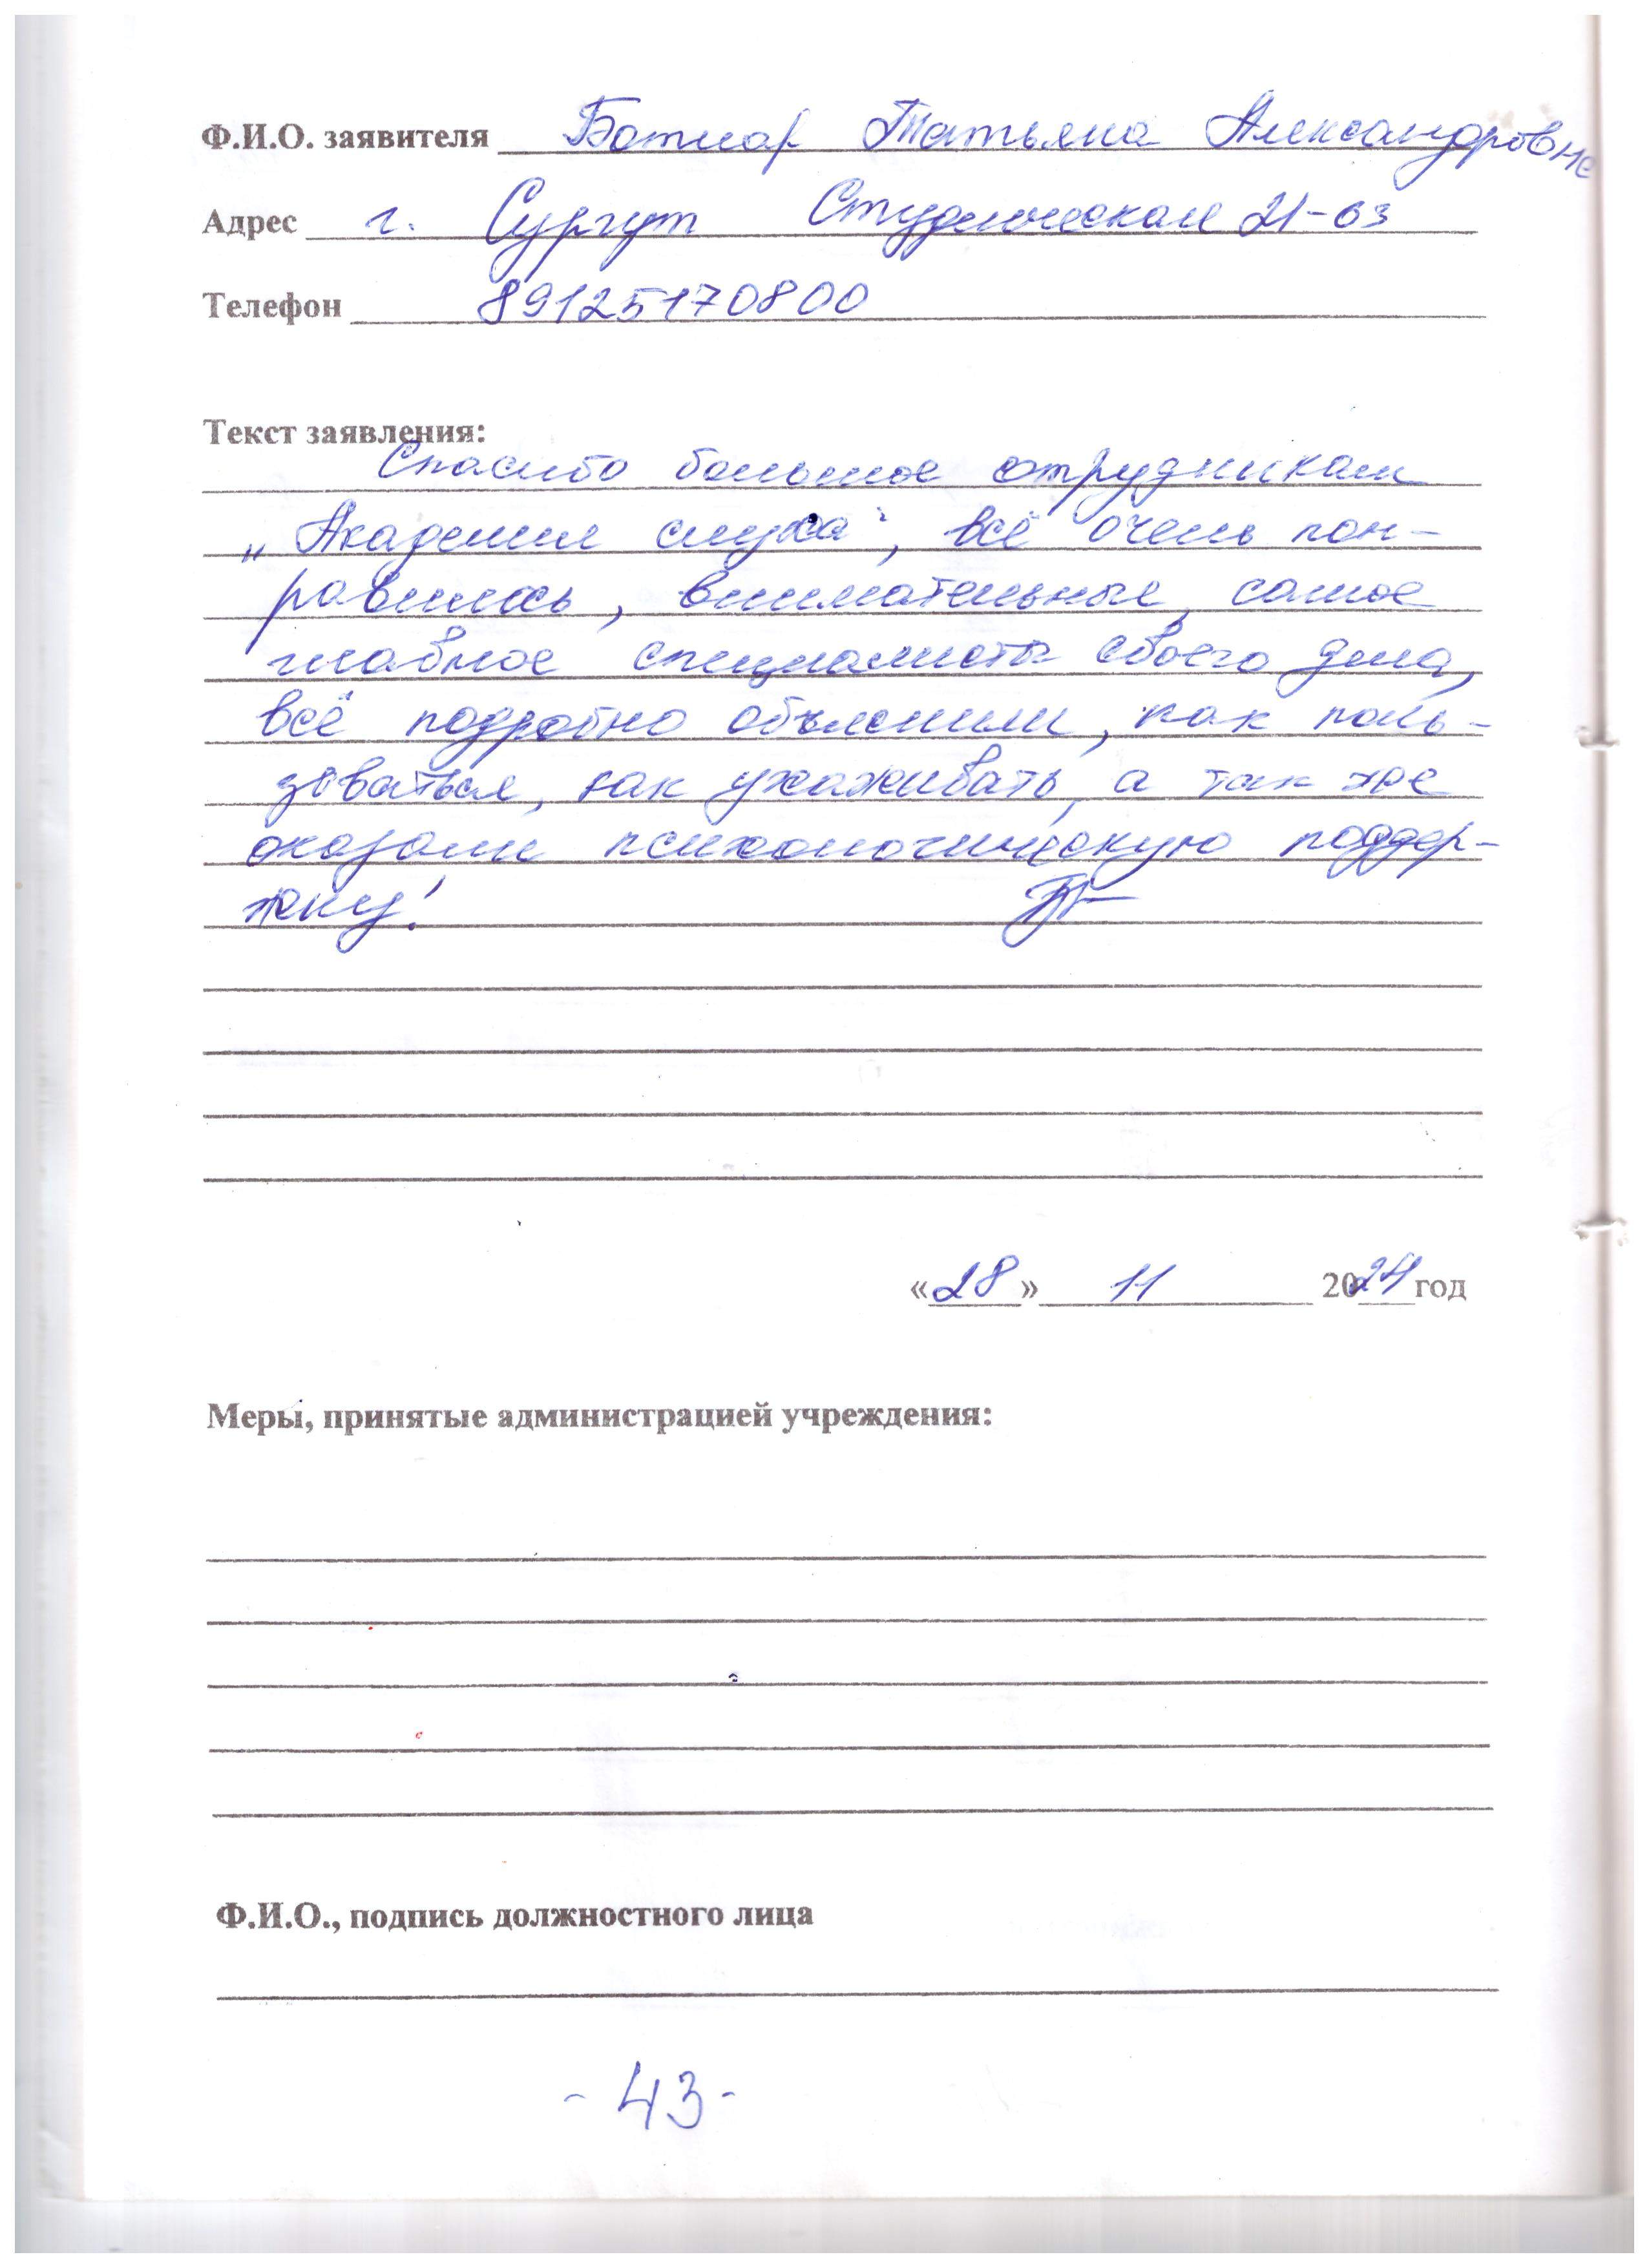 Ф.И.О. заявителя Ботнар Татьяна Александровна
Адрес г. Сургут Студенческая 21-63
Телефон 89125170800
Текст заявления:
Спасибо большое сотрудникам
„Академия слуха“, всё очень пон-
равилось, внимательные, самое
главное специалисты своего дела,
всё подробно объяснили, как поль-
зоваться, как ухаживать, а так же
оказали психологическую поддер-
жку!
«28» 11 2024 год
Меры, принятые администрацией учреждения:
Ф.И.О., подпись должностного лица
- 43 -